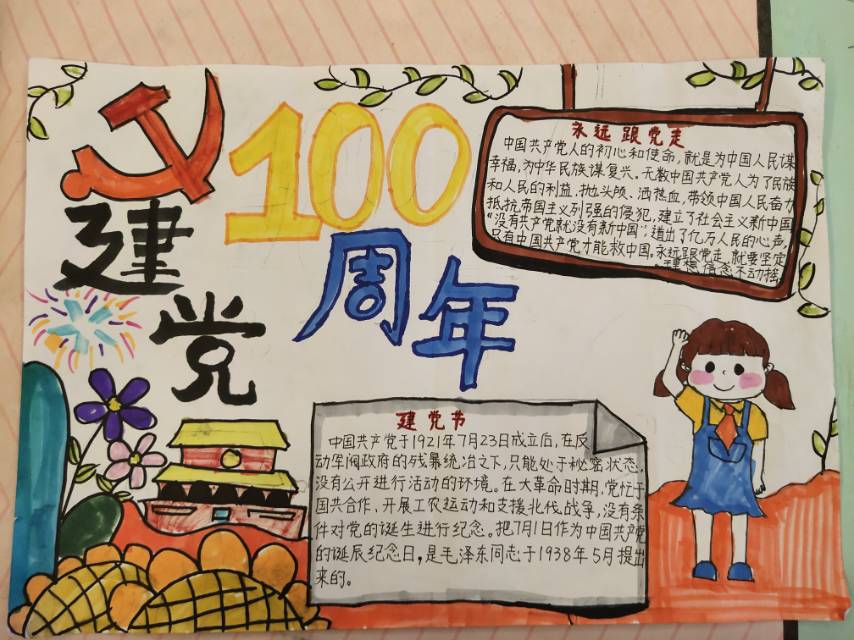 建党
100
周年
永远跟党走
中国共产党人的初心和使命,就是为中国人民谋
幸福,为中华民族谋复兴。无数中国共产党人为了民族
和人民的利益,抛头颅、洒热血,带领中国人民奋力
抵抗帝国主义列强的侵犯,建立了社会主义新中国
“没有共产党就没有新中国”,道出了亿万人民的心声,
只有中国共产党才能救中国。永远跟党走,就要坚定
理想信念不动摇。
建党节
中国共产党于1921年7月23日成立后,在反
动军阀政府的残暴统治之下,只能处于秘密状态,
没有公开进行活动的环境。在大革命时期,党忙于
国共合作、开展工农运动和支援北伐战争,没有条
件对党的诞生进行纪念。把7月1日作为中国共产党
的诞辰纪念日,是毛泽东同志于1938年5月提出
来的。